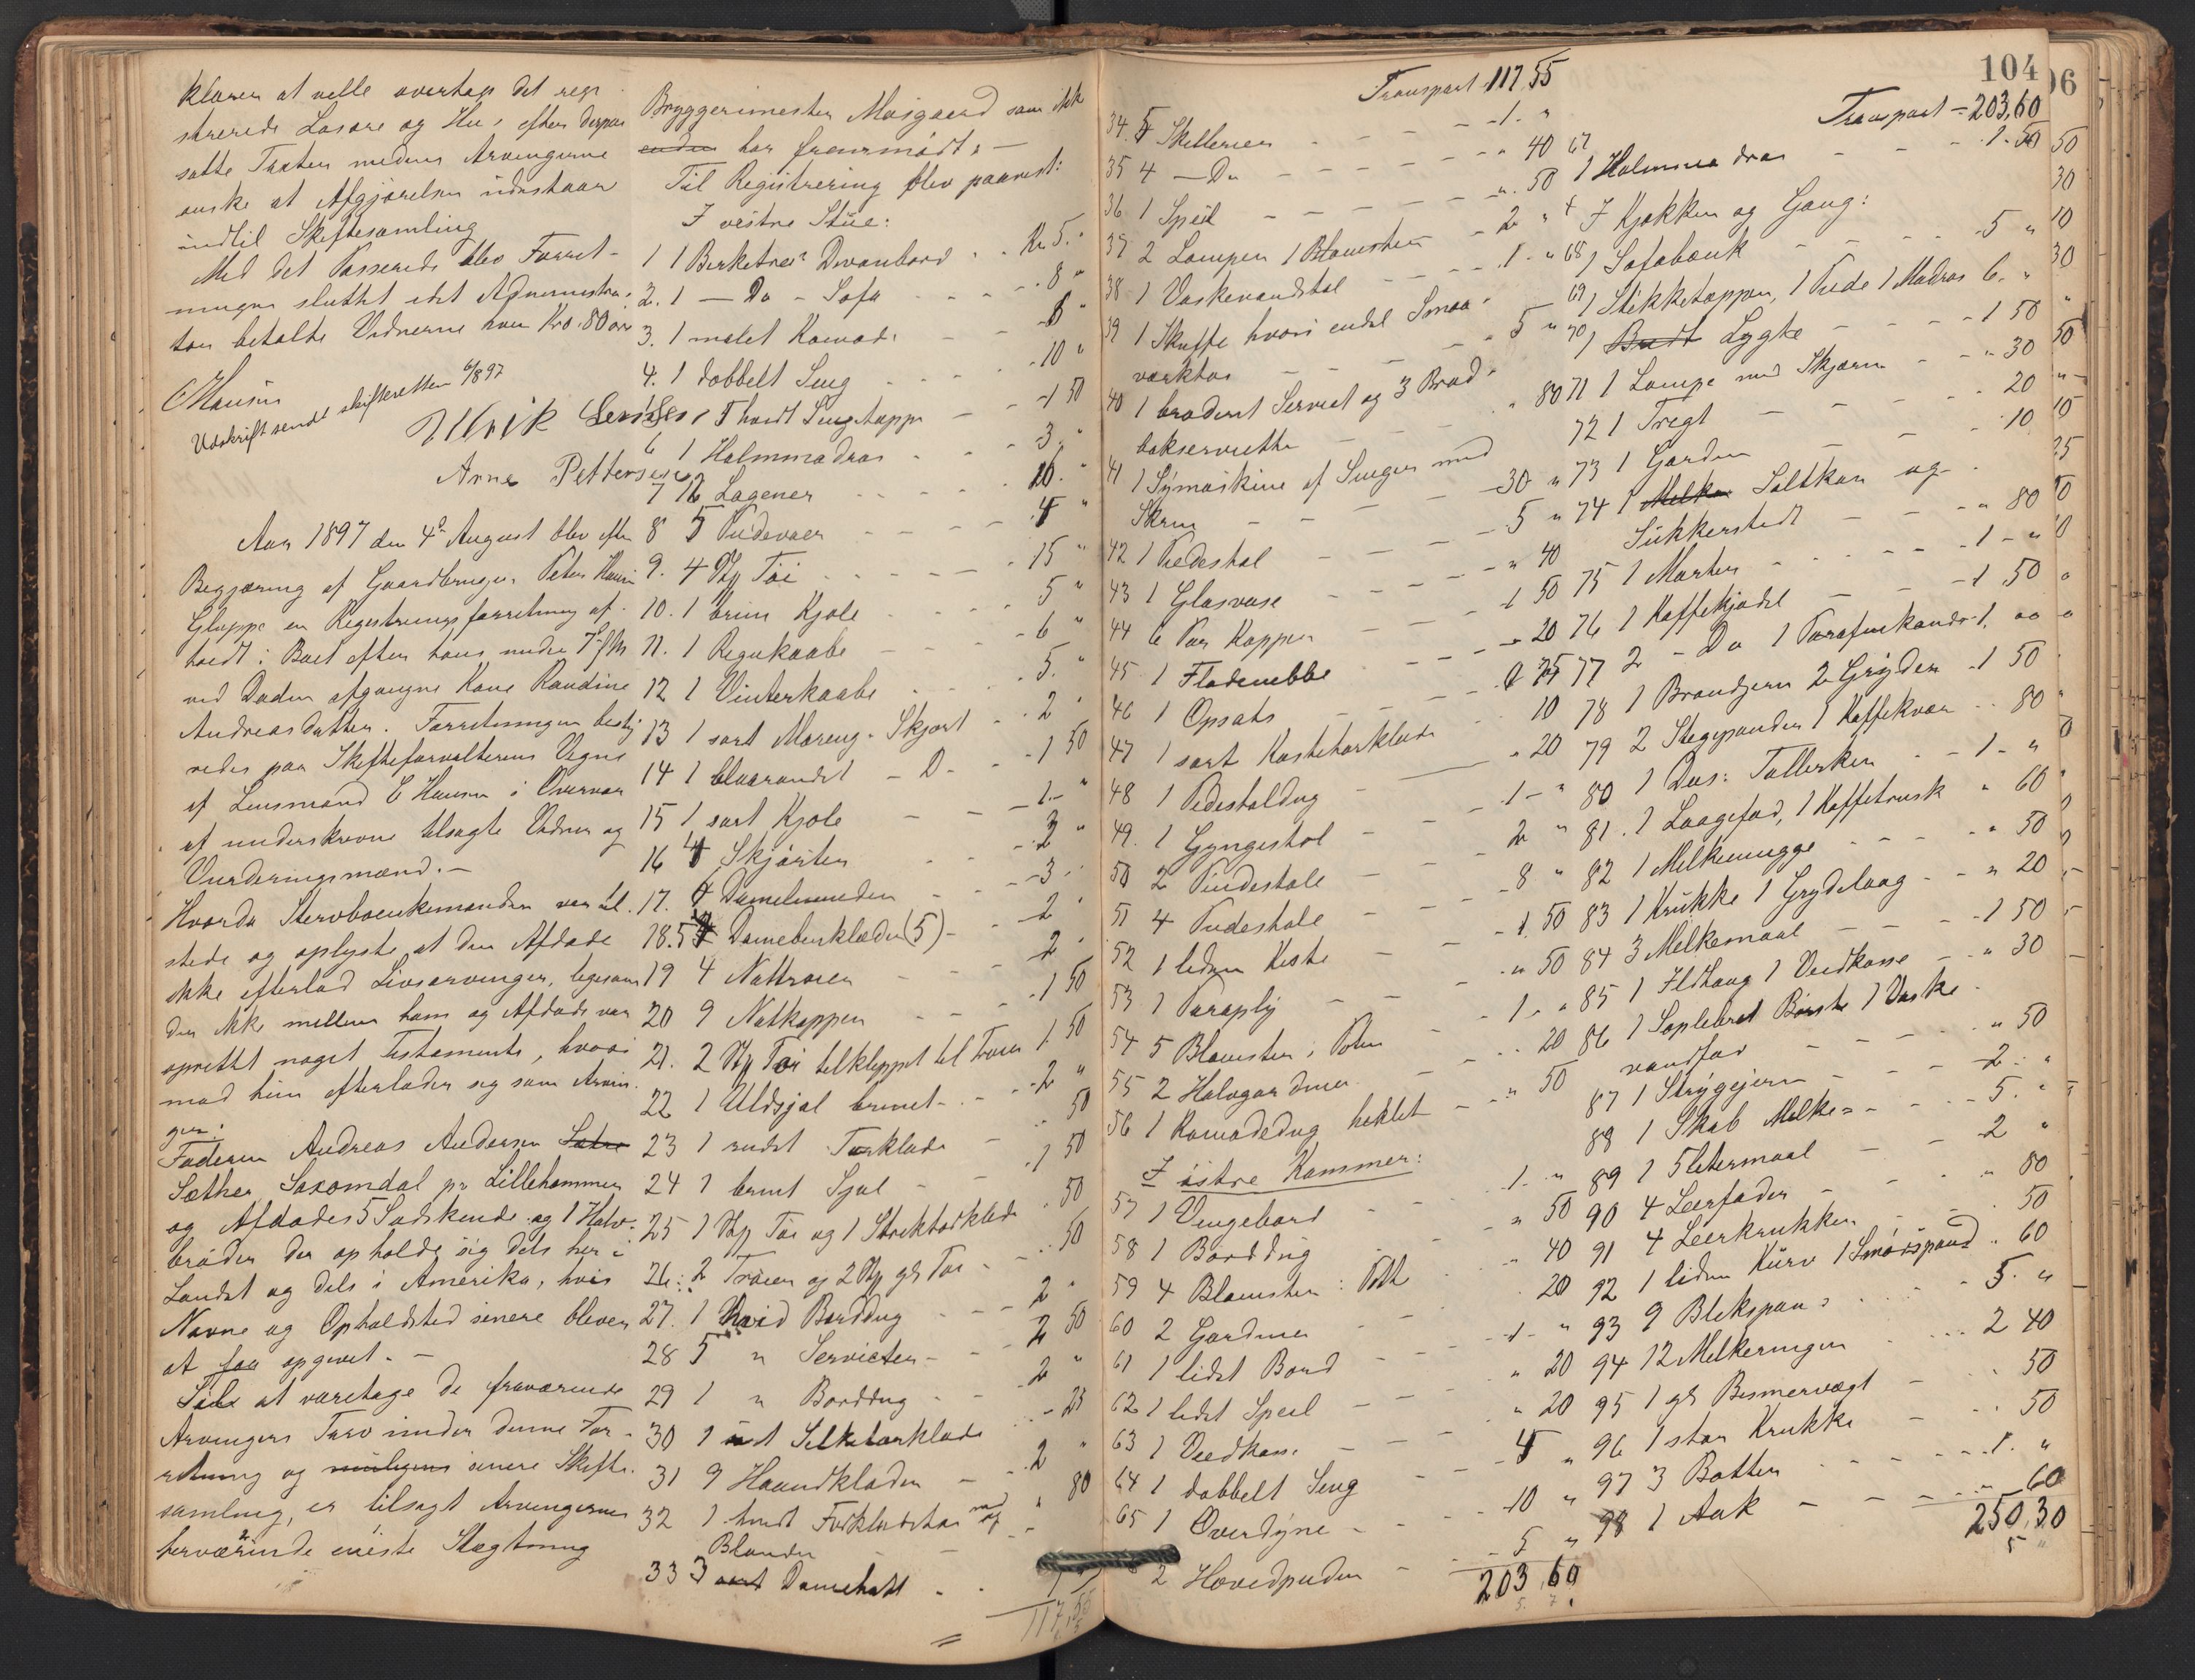 klærer at ville overtage det regi-
strerede Løsøre og Hus efter derpaa
satte Taxter medens Arvingerne
ønske at Afgjørelsen udestaar
indtil Skiftesamling
Med det Passerede blev Forret-
ningen sluttet idet Administra-
tor betalte Vidnerne hver Kro. 80 øre
E Hansen
Udskrift sendt skifteretten 6/8 97
Ulrik
Arne Pettersen
Aar 1897 den 4de August blev efter
Begjæring af Gaardbruger Peter Hansen
Gluppe en Registreringsforretning af-
holdt i Boet efter hans under 7de f M
ved Døden afgangne Kone Randine
Andreasdatter. Forretningen besty-
redes paa Skifteforvalterens Vegne
af Lensmand E Hansen i Overvær
af underskrevne tilsagte Vidner og
Vurderingsmænd. —
Hvorda Stervboenkemanden var til
stede og oplyste at den Afdøde
ikke efterlod Livsarvinger, ligesom
der ikke mellem ham og Afdøde var
oprettet noget Testamente, hvori
mod hun efterlader sig som Arvin-
ger:
Faderen Andreas Andersen Sætre
Sæther Saxomdal pr Lillehammer
og Afdødes 5 Sødskende og 1 Halv-
broder der opholde sig dels her i
Landet og dels i Amerika, hvis
Navne og Opholdsted senere bliver
at faa opgivet. —
Til at varetage de fraværende
Arvingers Tarv under denne For-
retning og muligens senere Skifte-
samling, er tilsagt Arvingernes
herværende eneste Slægtning
Bryggerimester Mosgaard som ikke
endnu har fremmødt. —
Til Registrering blev paavist:
I vestre Stue:
1 1 Birketræs Divanbord . . Kr 5. "
2. 1 — Do — Sofa - - - 8 "
3. 1 malet Komode - - 8 "
4. 1 dobbelt Seng - - - 10 "
5 1 hvidt Sengetæppe — - 1 50
6 1 Halmmadras - - - 3. "
7 12 Lagener - - - - 16. "
8 5 Pudevaer - - - 4 "
9. 4 Stkr Tøi - - - - 15 "
10. 1 brun Kjole - - - 5 "
11. 1 Regnkaabe - - - 6 "
12 1 Vinterkaabe - - - 5. "
13 1 sort Moreng-Skjørt - - 2 "
14 1 blaarandet — D- - - 1 50
15 1 sort Kjole - - - 1.- "
16 4 Skjørter - - - 2 "
17. 6 Damelinneder - - - 3 "
18. 5 Damebenklæder (5) - - 2 "
19 4 Nattrøier - - - 2 "
20 9 Natkapper - - - 1 50
21. 2 Stkr Tøi tilklippet til Trøier 1 50
22 1 Uldsjal brunet - - - 2 "
23 1 rudet Tørklæde - - - 50
24 1 brunt Sjal - - - 1 50
25 1 Stkr Tøi og 1 Striktørklæde - 50
26. 2 Trøier og 2 Stkr gl Tøi - - 50
27. 1 Hvid Borddug - - - 2 "
28 5 " Servietter - - - 2 50
29 1 " Borddug - - - 2 "
30 1 Silketørklæde - - - 25
31 9 Haandklæder - - - 2 "
32 1 hvidt Forklæde med
Blonder - - - " 80
33 3 sort Damehatt - - 1 "
117,55
104
Transport 117 55
34. 5 Skillerier - - - - 1. "
35 4 — Do - - - - " 40
36 1 Speil - - - - ". 50
37 2 Lamper 1 Blomster - 2 "
38 1 Vaskevandstol - - - 1. "
39 1 Skuffe hvori endel Smaa-
værktøi - - - - 5 "
40 1 broderet Serviet og 3 Brød-
bakservietter - - - " 80
41 1 Symaskine af Singer med
Skrin - - - - 30 "
42 1 Piedestal - - - 5 "
43 1 Glasvase - - - " 40
44 6 Par Kopper - - - 1 50
45 1 Flødenebbe - - - " 20
46 1 Opsats - - - 75
47 1 sort Kastetørklæde - - 10
48 1 Pidestaldug - - - " 20
49. 1 Gyngestol - - - 1.- "
50 2 Pindestole - - - 2 "
51 4 Pudestole - - - 8 "
52 1 liden Kiste - - - 1. 50
53 1 Paraply - - - " 50
54 5 Blomster i Potter - - 1. "
55 2 Halvgardiner - - - 20
56 1 Komodedug heklet - - " 50
I østre Kammer:
57 1 Vengebord - - - 1. "
58 1 Borddug - - - " 50
59 4 Blomster i Pott - - " 40
60 2 Gardiner - - - 20
61 1 lidet Bord - - - 1. "
62 1 lidet Speil - - - " 20
63 1 Vedkasse - - - " 20
64 1 dobbelt Seng - - - 4 "
65 1 Overdyne - - - 10 "
2 Hovedpuder - - - 5 "
203,60
Transport = 203,60
67
1 Halmmadras - - - 1. 50
I Kjøkken og Gang:
68 1 Sofabænk - - - 5 "
69 1 Stikketæppe, 1 Pude 1 Madras 6. "
70 1 Budt Lygte - - - 1 50
71 1 Lampe med Skjærm - - " 30
72 1 Tregt - - - 20
73 1 Gardin - - - 10
74 1 Melke Saltkar og
Sukkerstedt - - - " 80
75 1 Morter - - - 1 - "
76 1 Kaffekjedel - - - 1 50
77 2 — Do 1 Parafinkande 1. 00
78 1 Brandjern 2 Gryder - 1 50
79 2 Stegepander 1 Kaffekvær - . 80
80 1 Dus: Tallerken - - 1 - "
81. 1 Laagefad, 1 Kaffetrusk " 60
82 1 Melkemugge - - - " 50
83 1 Krukke 1 Grydelaag - - " 20
84 3 Melkemaal - - - 1 50
85 1 Ildtang 1 Vedkasse - - " 30
86 1 Soplebret Børste 1 Vaske
vandfad - - - " 50
87 1 Strygejern - - - 2 - "
88 1 Skab Melke= - - - 5. "
89 1 5 litermaal - - - 2 "
90 4 Leerfader - - - " 80
91 4 Leerkrukker - - - 50
92 1 liden Kurv 1 Smørspand . 60
93 9 Blikspan: - - - 5. "
94 12 Melkeringer - - - 2 40
95 1 gl Bismervægt - - - 50
96 1 stor Krukke - - - 50
97 3 Bøtter - - - 1. "
98 1 Aak - - - " 60
250,30